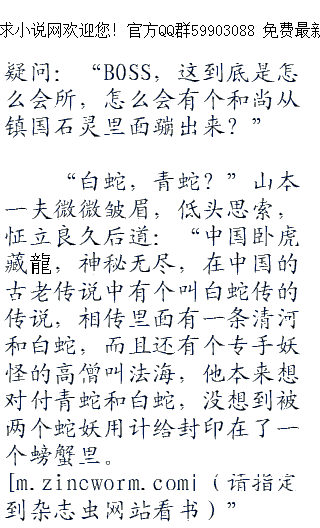 求小说网欢迎您！官方QQ群59903088 免费最新
疑问：“BOSS，这到底是怎
么会所，怎么会有个和尚从
镇国石灵里面蹦出来？”
“白蛇，青蛇？”山本
一夫微微皱眉，低头思索，
怔立良久后道：“中国卧虎
藏龍，神秘无尽，在中国的
古老传说中有个叫白蛇传的
传说，相传里面有一条清河
和白蛇，而且还有个专手妖
怪的高僧叫法海，他本来想
对付青蛇和白蛇，没想到被
两个蛇妖用计给封印在了一
个螃蟹里。
[m.zincworm.com]（请指定
到杂志虫网站看书）”